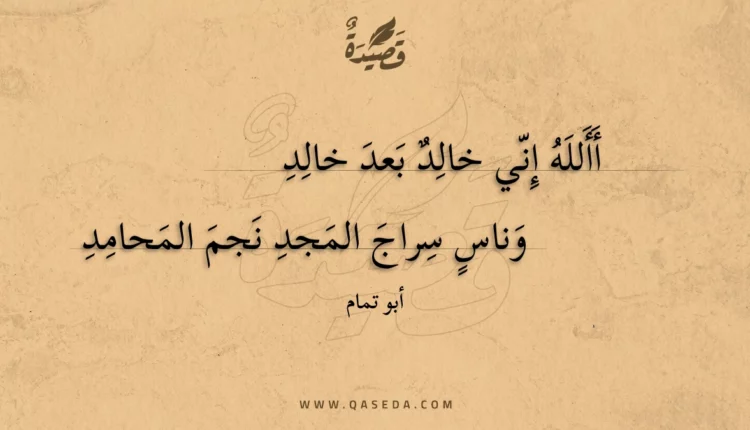 قَصِيدَةٌ
أَأَللَهُ إِنّي خالِدٌ بَعدَ خالِدِ
وَناسٍ سِراجَ المَجدِ نَجمَ المَحامِدِ
أبو تمام
WWW.QASEDA.COM